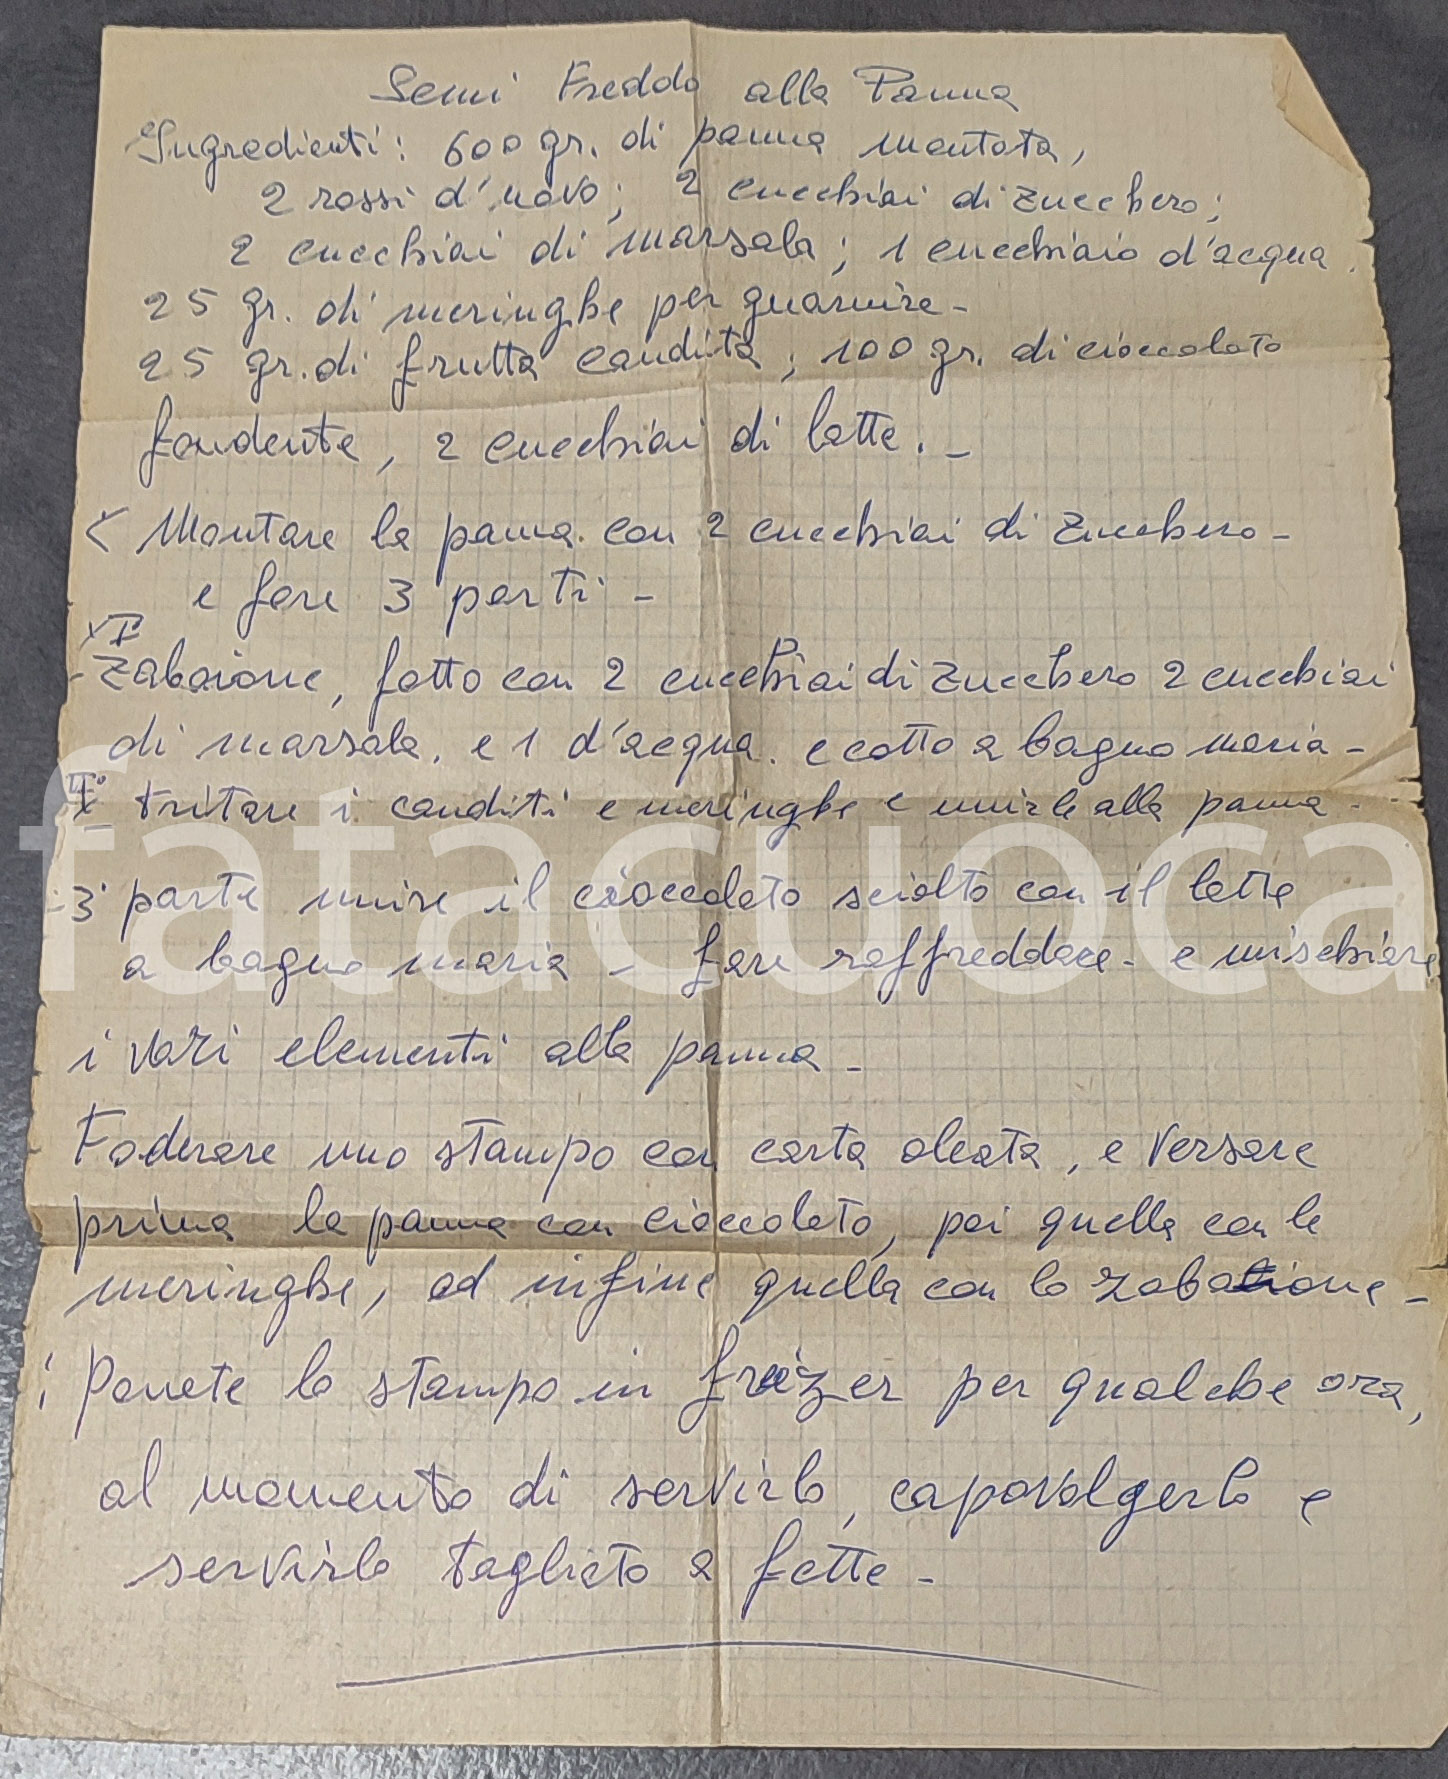 Semi Freddo alla Panna
Ingredienti: 600 gr. di panna montata,
2 rossi d'uovo; 2 cucchiai di zucchero;
2 cucchiai di marsala; 1 cucchiaio d'acqua.
25 gr. di meringhe per guarnire -
25 gr. di frutta candita; 100 gr. di cioccolato
fondente, 2 cucchiai di latte. -
< Montare la panna con 2 cucchiai di zucchero -
e fare 3 parti -
I°
- Zabaione, fatto con 2 cucchiai di zucchero 2 cucchiai
di marsala. e 1 d'acqua. e cotto a bagno maria -
II° tritare i canditi e meringhe e unirle alla panna -
- 3° parte unire il cioccolato sciolto con il latte
a bagno maria - fare raffreddare - e mischiare
i vari elementi alla panna -
Foderare uno stampo con carta oleata, e versare
prima la panna con cioccolato, poi quella con le
meringhe, ed infine quella con lo zabaione -
Ponete lo stampo in frizer per qualche ora,
al momento di servirlo, capovolgerlo e
servirlo tagliato a fette -
fatacuoca